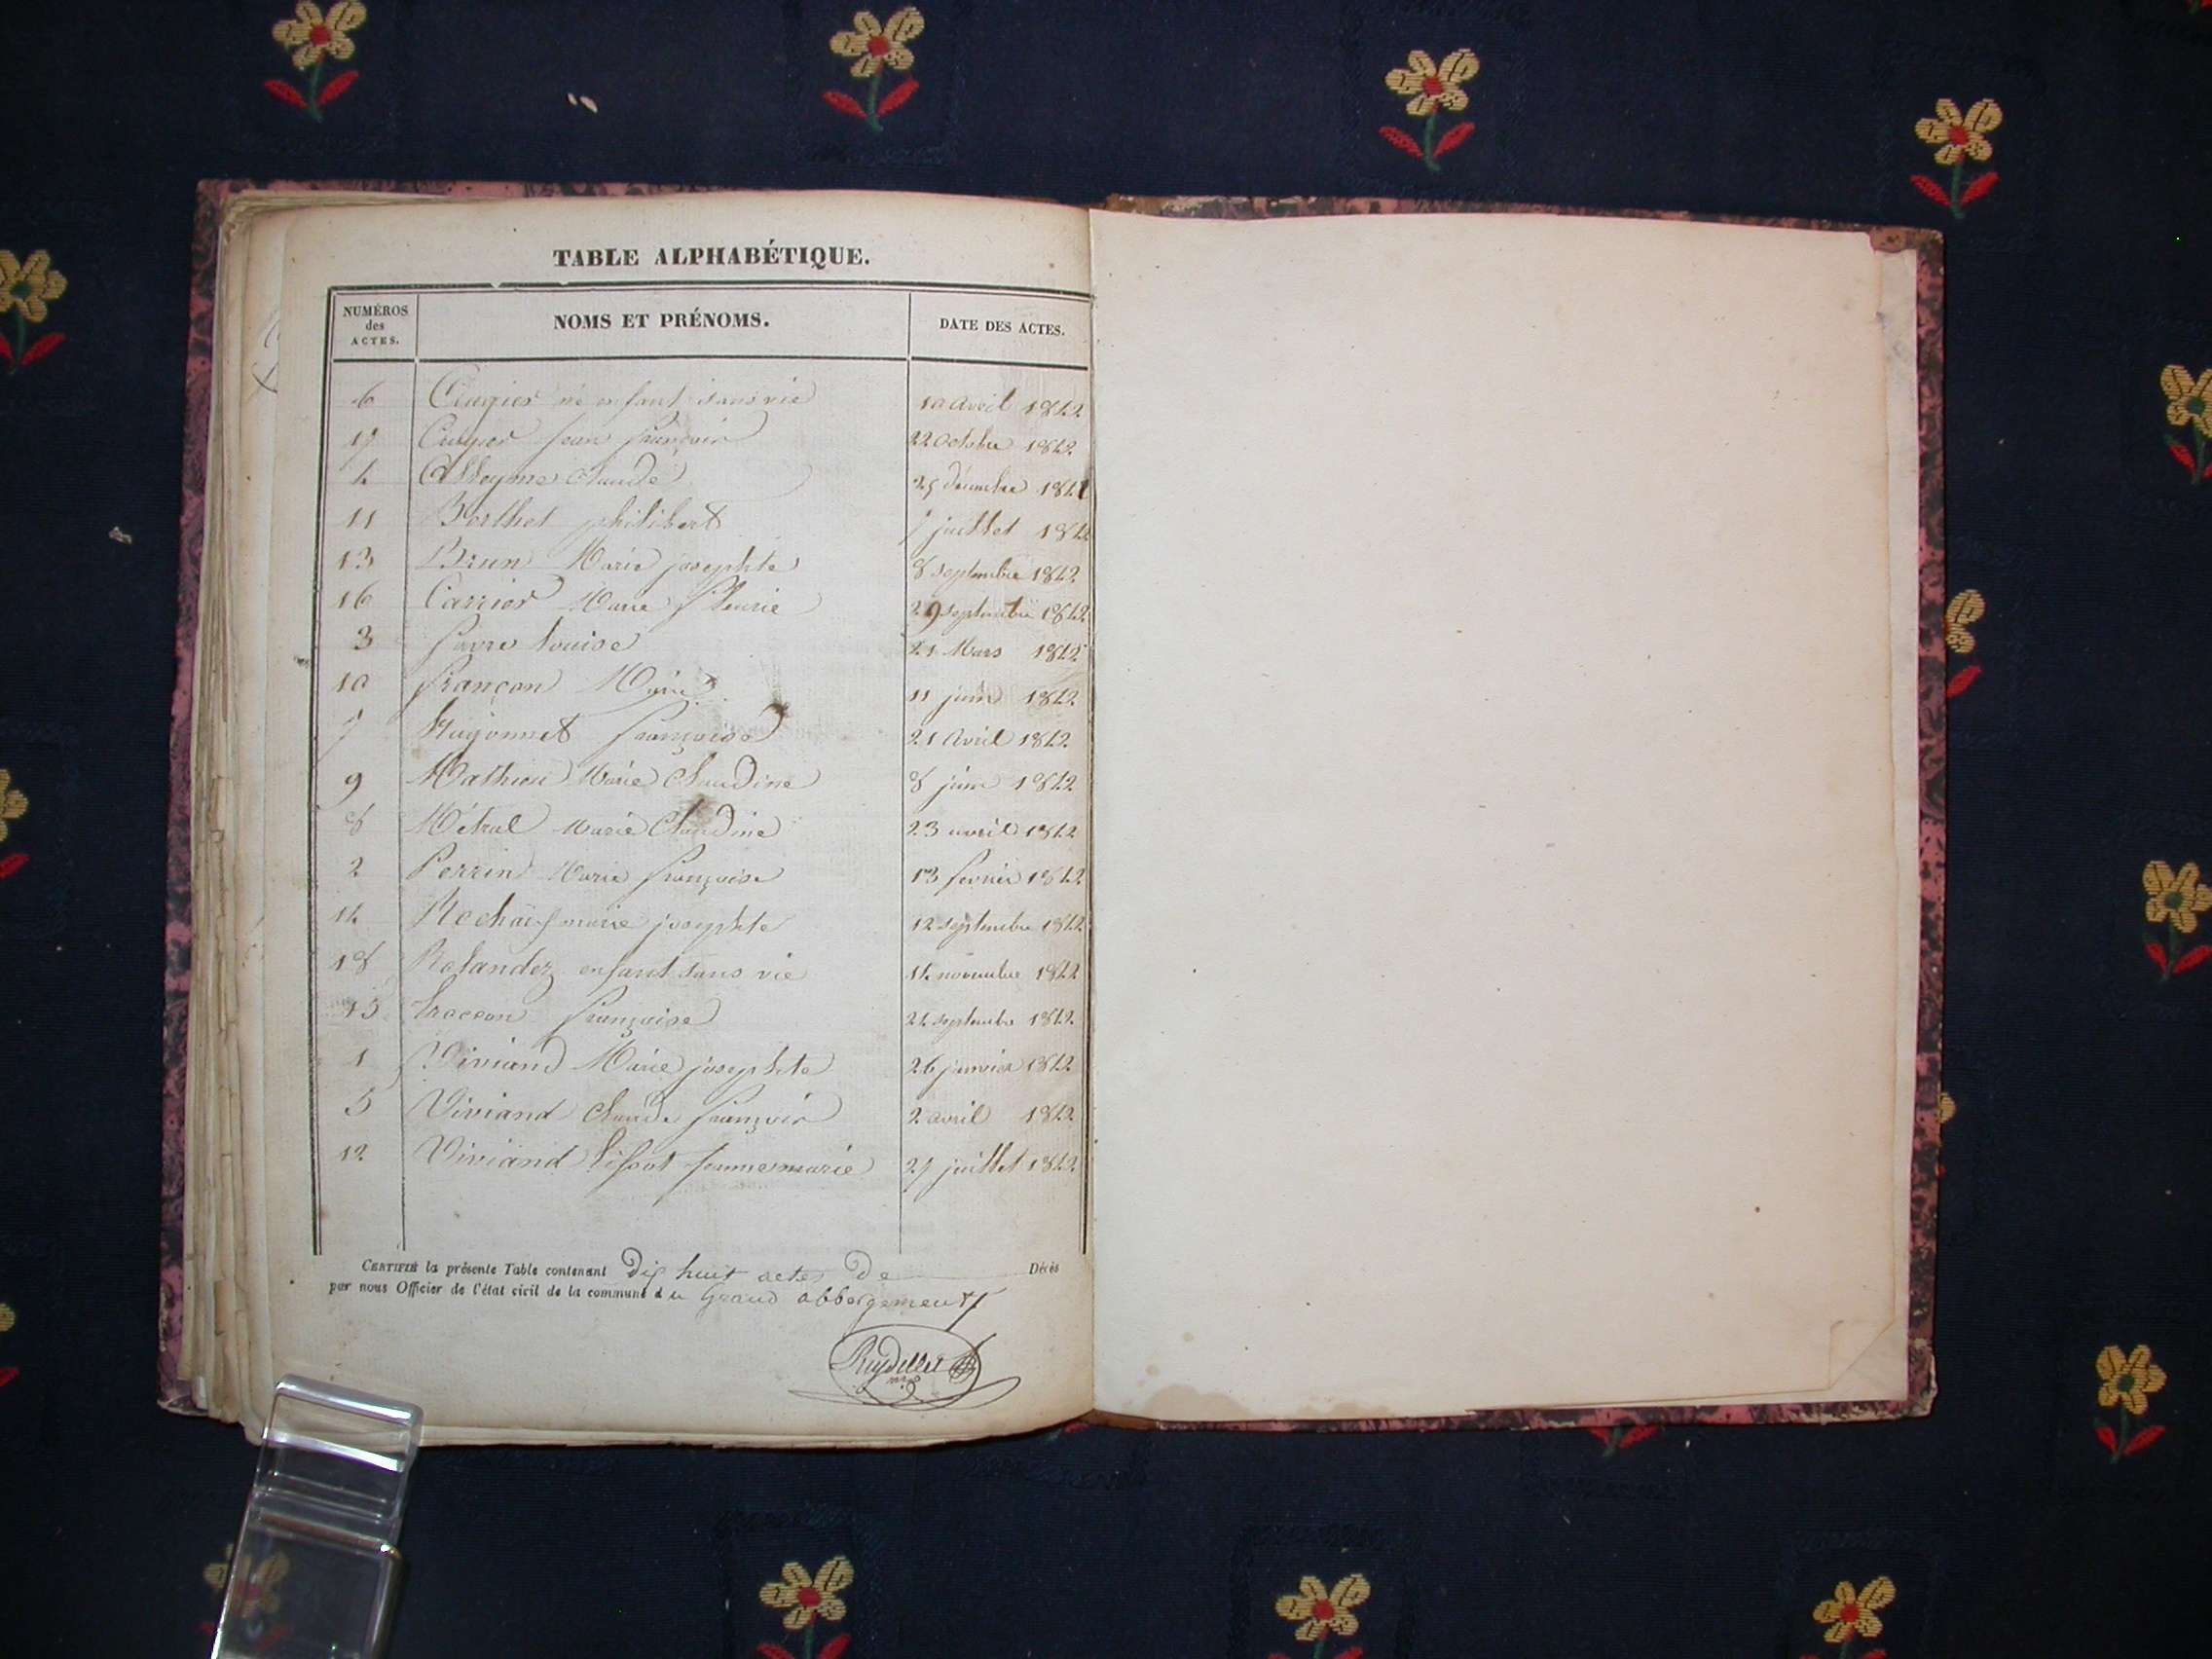 TABLE ALPHABÉTIQUE.
NUMÉROS des ACTES. NOMS ET PRÉNOMS. DATE DES ACTES.
6 né enfant sans vie 10 avril 1842
17 jean françois 22 octobre 1842
4 Claude 25 décembre 1842
11 Berthet philibert 7 juillet 1842
13 Brun Marie josephte 8 septembre 1842
16 Carrier Marie fleurie 29 septembre 1842
3 favre louise 21 Mars 1842
10 françon Marie 11 juin 1842
7 Hugonnet françoise 21 avril 1842
9 Mathieu Marie Claudine 8 juin 1842
8 Métral Marie Claudine 23 avril 1842
2 Perrin Marie françoise 13 fevrier 1842
14 marie josephte 12 septembre 1842
18 Rolandez enfant sans vie 14 novembre 1842
15 françoise 24 septembre 1842
1 Viviand Marie josephte 26 janvier 1842
5 Viviand Claude françois 2 avril 1842
12 Viviand jeanne marie 27 juillet 1842
CERTIFIÉ la présente Table contenant Dix huit actes De Décès
par nous Officier de l'état civil de la commune du Grand abbergement
Reydellet